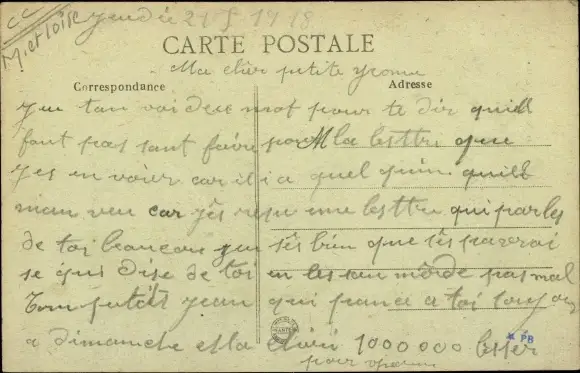 CC
M. et Loise
jeudi 21 1918
CARTE POSTALE
Ma chier petite yvonne
Correspondance
Adresse
jeu tan voi deu mot pour te dir quill
faut pas sant faire par la lesttre que
jes en voier car il i a quel quin quill
man veu car jès resu une lesttre qui parles
de toi beaucou jeu sès bien que sès pas vrai
se quis dise de toi en les san morde pas mal
Ton petit jean qui pance a toi toujour
a dimanche 1000000 besser
pour
PB